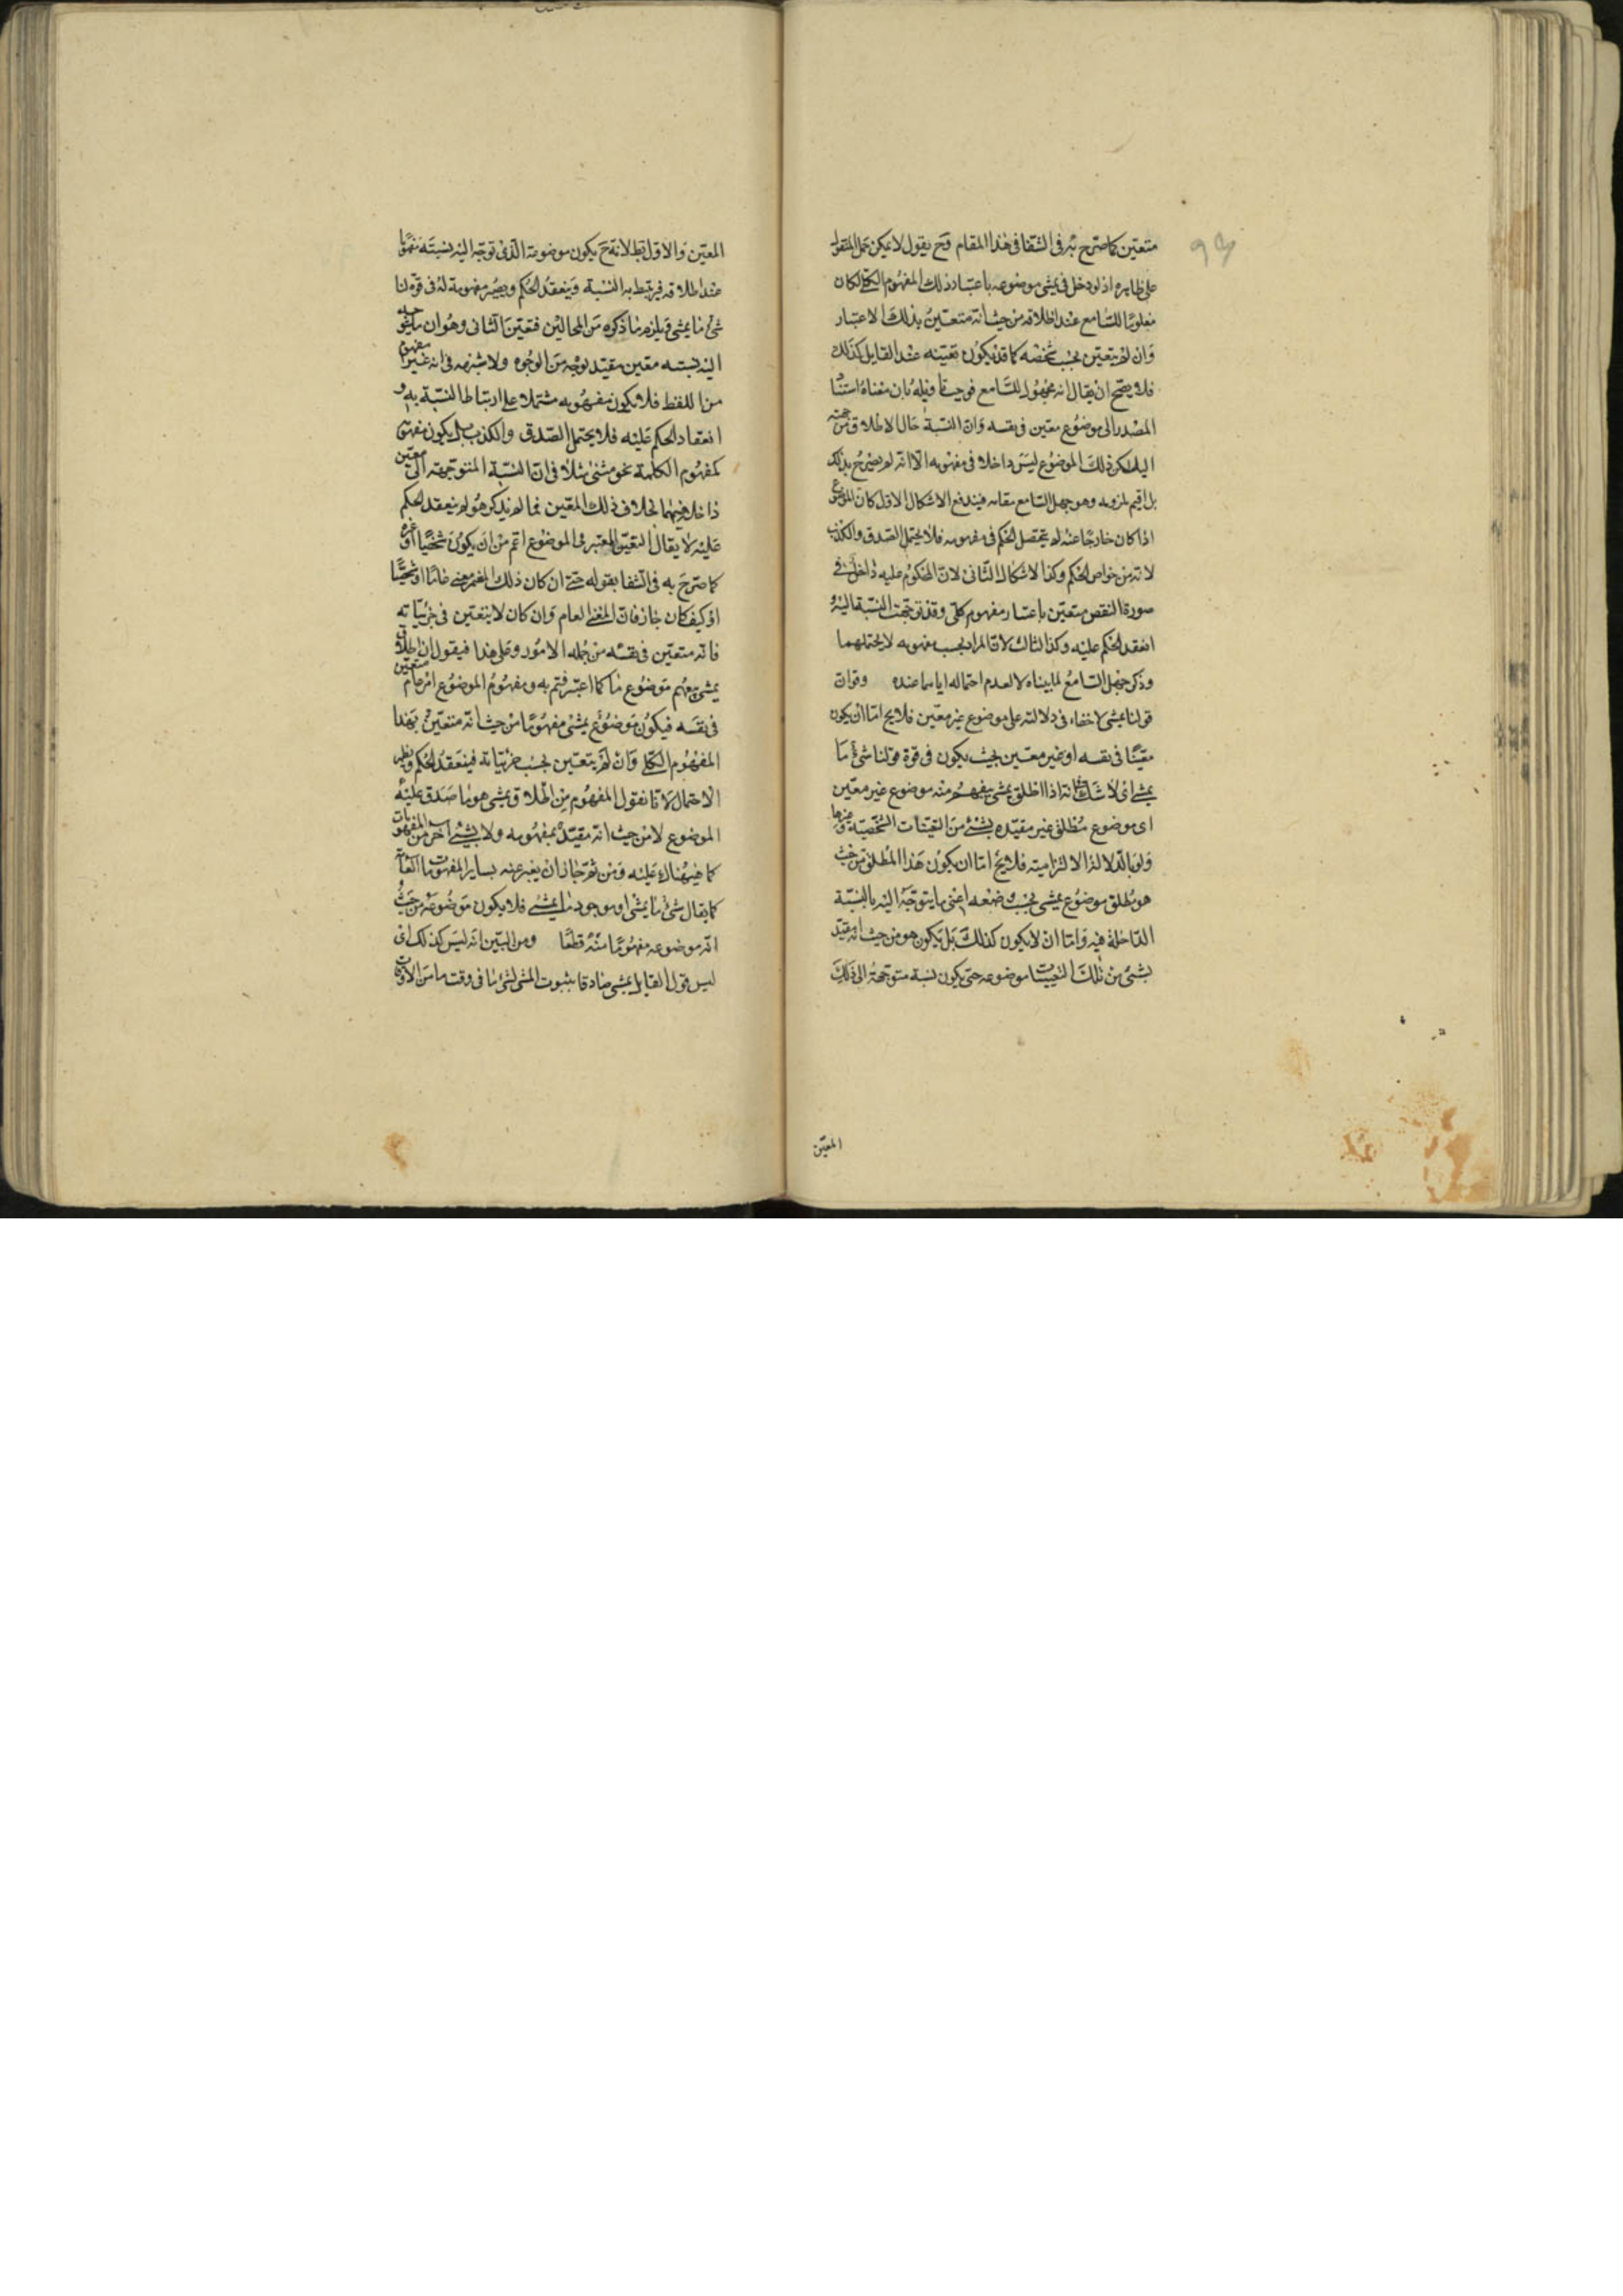 متعین کما صرح به فی الشفا فی هذا المقام فح یقول لا یمکن حمل المنقول
علی ظاهره اذ لو دخل فی یمشی موضوعه باعتبار ذلک المفهوم الکلی لکان
معلومًا للسامع عند اطلاقه من حیث انه متعین بذلک الاعتبار
وان لم یتعین بحسب شخصه کما قد یکون تعینه عند القایل کذلک
فلا یصح ان یقال انه مجهول للسامع بان معناه استناد
المصدر الی موضوع معین فی نفسه وان النسبة حال الاطلاق من جهته
الیه لکن ذلک الموضوع لیس داخلا فی مفهومه الا انه لم یصرح بذلک
بل اقیم لمزومه وهو جهل السامع مقامه فیندفع الاشکال الاول کان الموضوع
اذا کان خارجًا عنه لم یتحصل الحکم فی مفهومه فلا یحتمل الصدق والکذب
لانه من خواص الحکم وکذا الاشکال الثانی لان المحکوم علیه داخل فی
صورة النقض متعین باعتبار مفهوم کلی وقد توجهت النسبة الیه و
انعقد الحکم علیه وکذا الثالث لان المراد بحسب مفهومه لا یحتملهما
وذکر جهل السامع لما بیناه لا لعدم احتماله ایاهما عنده وقوان
قولنا یمشی لا خفاء فی دلالته علی موضوع غیر معین فلا یخ اما ان یکون
معینًا فی نفسه او غیر معین بحیث یکون فی قوة قولنا شیء ما
یمشی ای لا شک فی انه اذا اطلق یمشی یفهم منه موضوع غیر معین
ای موضوع مطلق غیر مقیده بشیء من التعینات الشخصیة وغیرها
ولو بالدلالة الالتزامیة فلا یخ اما ان یکون هذا المطلق من حیث
هو مطلق موضوع یمشی بحسب وضعه اعنی ما یتوجه الیه بالنسبة
الداخلة فیه واما ان لا یکون کذلک بل یکون هو من حیث انه مقید
بشیء من تلک التعینات موضوعه حتی یکون نسبة متوجهة الی ذلک
المعین
المعین والاول بط لانه ح یکون موضوعه الذی توجه الیه نسبته مفهومًا
عند اطلاقه فیرتبط به النسبة وینعقد الحکم ویصیر مفهومه له فی قوة لنا
شیء ما یمشی ویلزم ما ذکره من المحالین فتعین الثانی وهو ان ما یتوجه
الیه نسبته معین مقید بوجه من الوجوه ولا شبهة فی انه غیر مفهوم
من اللفظ فلا یکون مفهومه مشتملا علی ارتباط النسبة به و
انعقاد الحکم علیه فلا یحتمل الصدق والکذب بل یکون مفهومی
کمفهوم الکلمة نحو مشی مثلا فی ان النسبة المتوجهة الی معین
داخلة فیهما بخلاف ذلک المعین فما لم یذکر هو لم ینعقد الحکم
علیه لا یقال التعین المعتبر فی الموضوع اعم من ان یکون شخصیًا او غیره
کما صرح به فی الشفا بقوله حتی ان کان ذلک المعنی عامًا او شخصیًا
او کیف کان جاز فان المعنی العام وان کان لا یتعین فی جزئیاته
فانه متعین فی نفسه من جمله الامور وعلی هذا فیقول ان اطلاق
یمشی یفهم موضوع ما کما اعترفتم به ومفهوم الموضوع امر عام متعین
فی نفسه فیکون موضوع یمشی مفهومًا من حیث انه متعین بهذا
المفهوم الکلی وان لم یتعین بحسب جزئیاته فینعقد الحکم ویظهر
الاحتمال لانا نقول المفهوم من اطلاق یمشی هو ما صدق علیه
الموضوع لا من حیث انه مقید بمفهومه ولا بشیء اخر من المفهومات
کما هناک علیه ومن ثم جاز ان یعبر عنه بسایر المفهومات العامة
کما یقال شیء ما یمشی او موجود ما یمشی فلا یکون موضوعه من حیث
انه موضوعه مفهومًا منه قطعًا ومن البین انه لیس کذلک ای
لیس قول القایل یمشی صادقا بثبوت المشی لشیء ما فی وقت ما من الاوقات